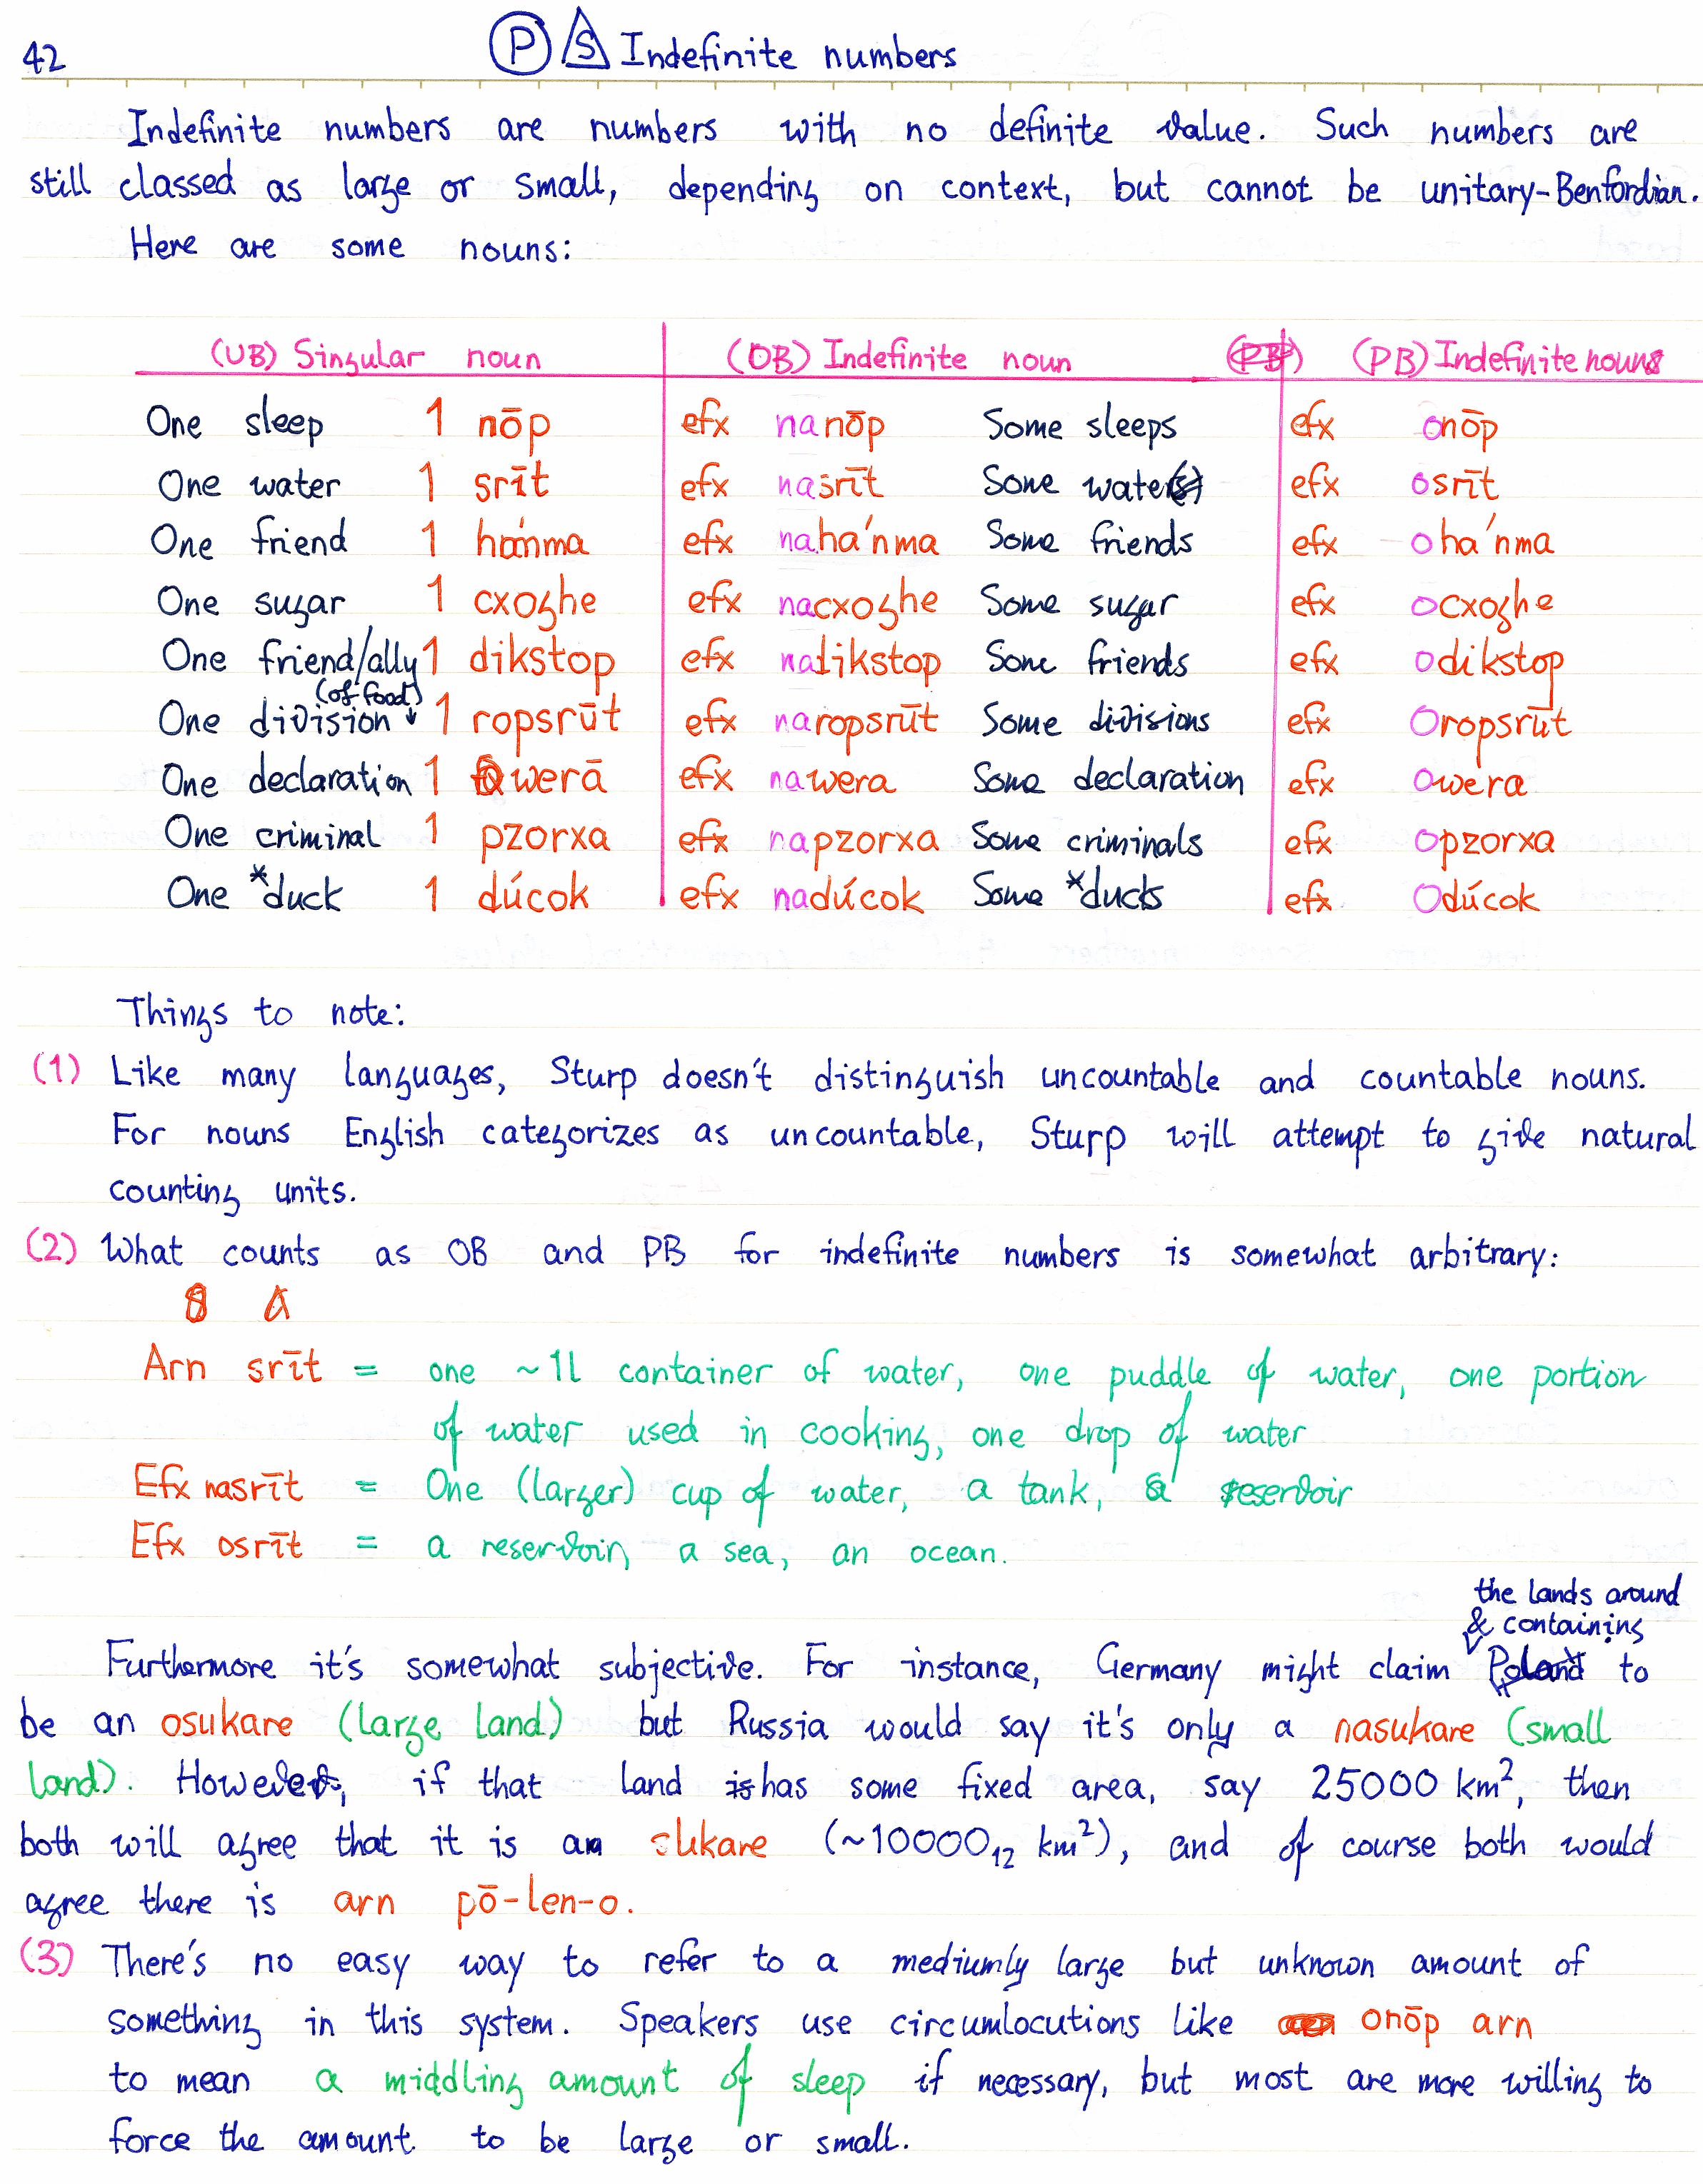 42 P S Indefinite numbers
Indefinite numbers are numbers with no definite value. Such numbers are
still classed as large or small, depending on context, but cannot be unitary-Benfordian.
Here are some nouns:
(UB) Singular noun (OB) Indefinite noun (PB) (PB) Indefinite nouns
One sleep 1 nōp efx nanōp Some sleeps efx onōp
One water 1 srīt efx nasrīt Some water(s) efx osrīt
One friend 1 hánma efx nahánma Some friends efx ohánma
One sugar 1 cxoghe efx nacxoghe Some sugar efx ocxoghe
One friend/ally 1 dikstop efx nadikstop Some friends efx odikstop
(of food)
One division ↓ 1 ropsrūt efx naropsrūt Some divisions efx oropsrūt
One declaration 1 werā efx nawera Some declaration efx owera
One criminal 1 pzorxa efx napzorxa Some criminals efx opzorxa
One *duck 1 dúcok efx nadúcok Some *ducks efx odúcok
Things to note:
(1) Like many languages, Sturp doesn't distinguish uncountable and countable nouns.
For nouns English categorizes as uncountable, Sturp will attempt to give natural
counting units.
(2) What counts as OB and PB for indefinite numbers is somewhat arbitrary:
Arn srīt = one ~1l container of water, one puddle of water, one portion
of water used in cooking, one drop of water
Efx nasrīt = One (larger) cup of water, a tank, a reservoir
Efx osrīt = a reservoir, a sea, an ocean.
the lands around
& containing
Furthermore it's somewhat subjective. For instance, Germany might claim Poland to
be an osukare (large land) but Russia would say it's only a nasukare (small
land). However, if that land is has some fixed area, say 25000 km², then
both will agree that it is an (~10000₁₂ km²), and of course both would
agree there is arn pō-len-o.
(3) There's no easy way to refer to a mediumly large but unknown amount of
something in this system. Speakers use circumlocutions like onōp arn
to mean a middling amount of sleep if necessary, but most are more willing to
force the amount to be large or small.